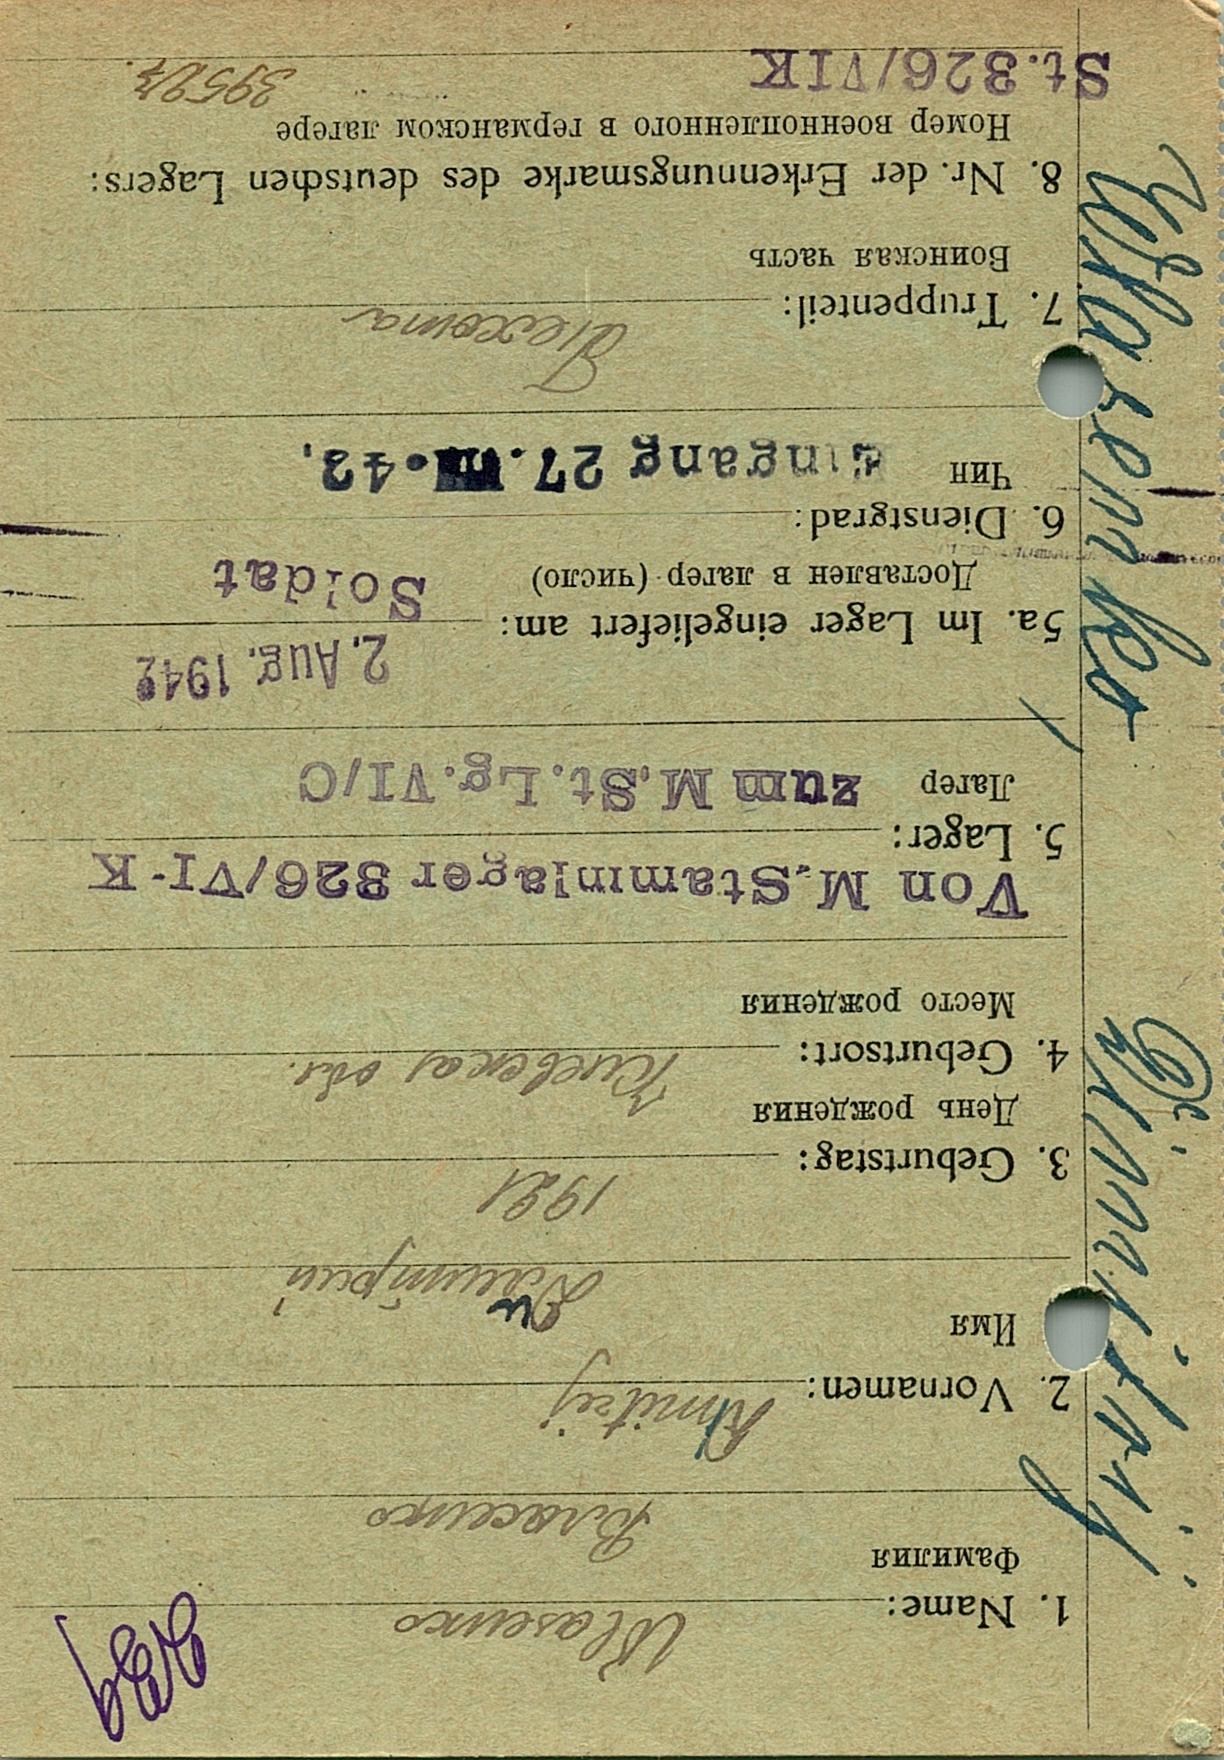 1. Name: Wlasenko
Фамилия
Власенко
2. Vornamen: Dmitrij
Имя
Дмитрий
1921
3. Geburtstag:
День рождения
4. Geburtsort: Киевская обл.
Место рождения
Von M.Stammlager 326/VI-K
5. Lager:
Лагер zum M.St.Lg.VI/C
2. Aug. 1942
5a. Im Lager eingeliefert am:
Доставлен в лагер (число) Soldat
6. Dienstgrad:
Чин Eingang 27.VIII.43.
Пехота
7. Truppenteil:
Воинская часть
8. Nr. der Erkennungsmarke des deutschen Lagers:
Номер военнопленного в германском лагере
St.326/VIK
Wlasenko, Dimitrij